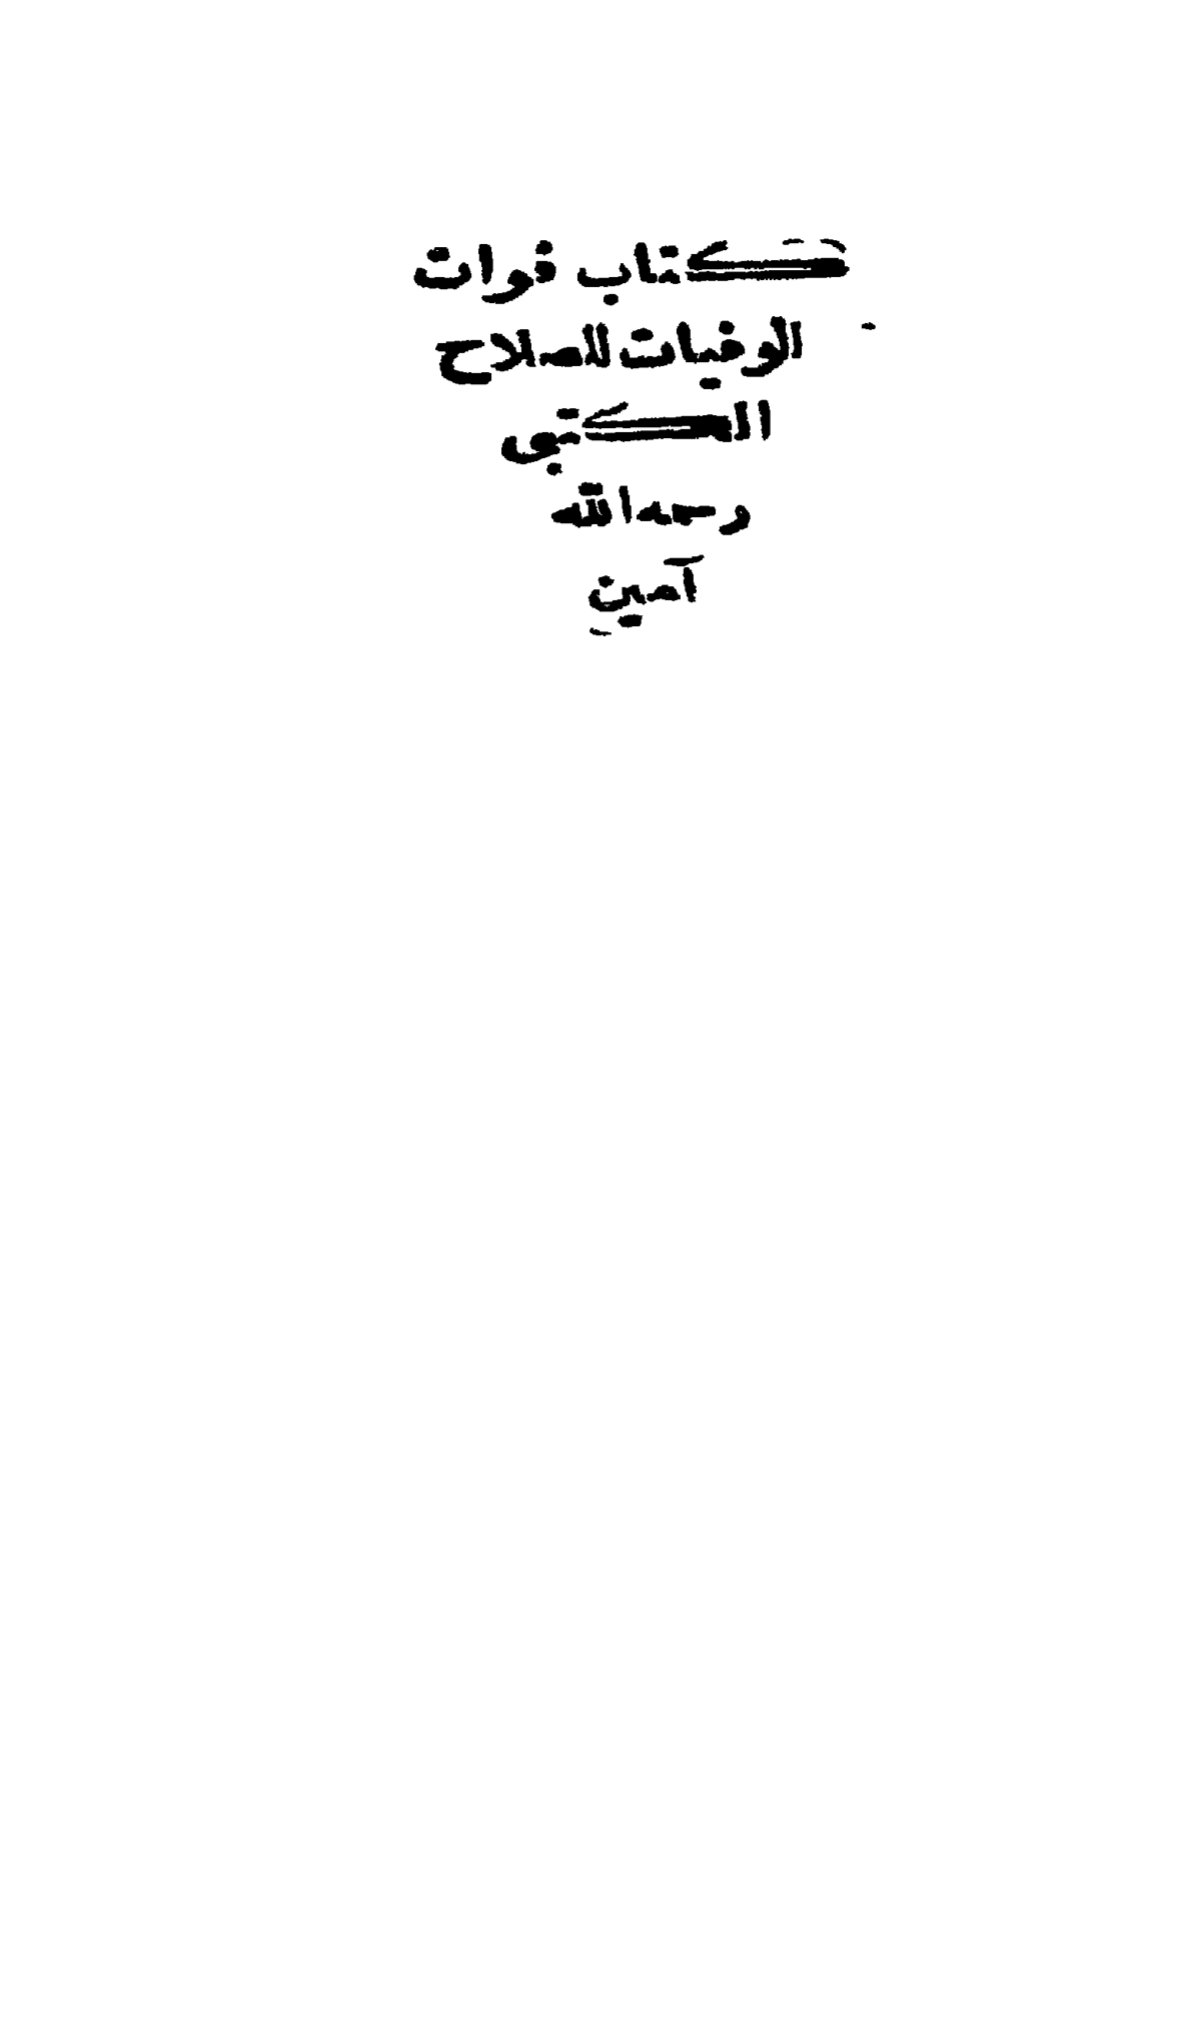 كتاب فوات
الوفيات للصلاح
الكتبى
رحمه الله
آمين